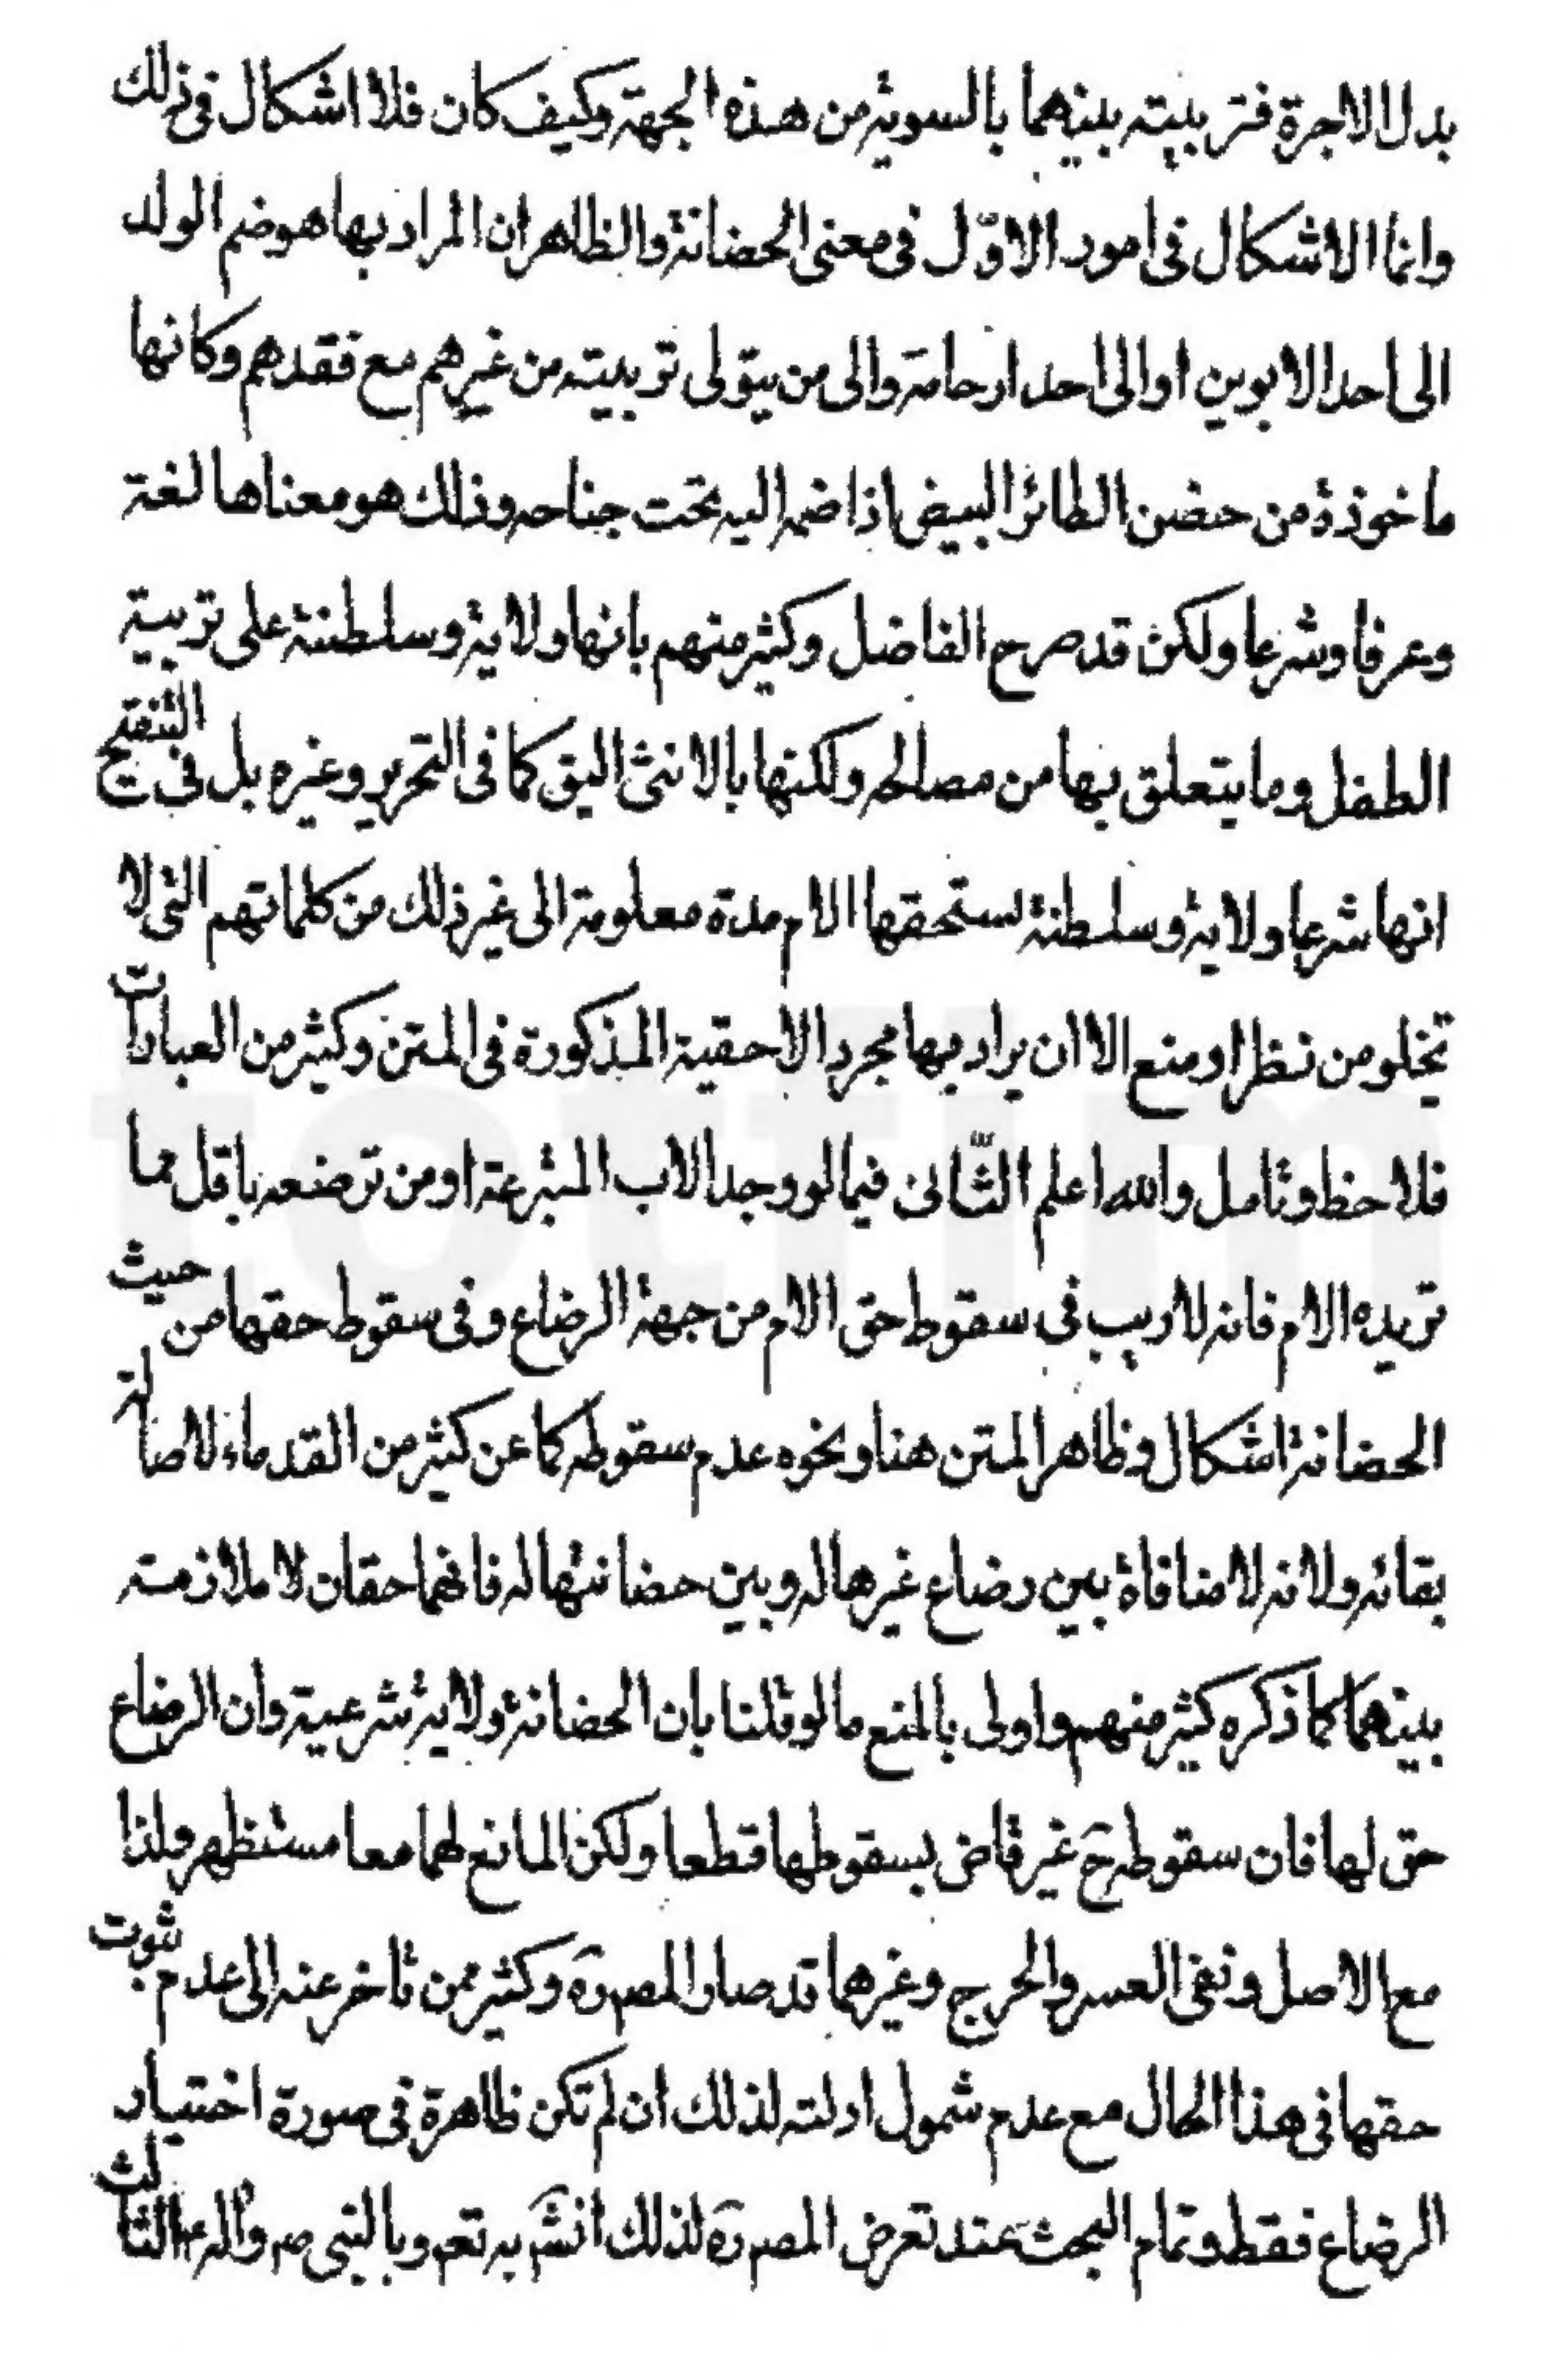 بدل الاجرة فتربيته بينهما بالسوية من هذه الجهة وكيف كان فلا اشكال فى ذلك
وانما الاشكال فى امور الاوّل فى معنى الحضانة والظاهر ان المراد بها هو ضم الولد
الى احد الابوين او الى احد ارحامه والى من يتولى تربيته من غيرهم مع فقدهم وكانها
ماخوذة من حضن الطائر البيض اذا ضمه اليه تحت جناحه وذلك هو معناها لغة
وعرفا وشرعا ولكن قد صرح الفاضل وكثير منهم بانها ولاية وسلطنة على تربية
الطفل وما يتعلق بها من مصالحه ولكنها بالانثى اليق كما فى التحرير وغيره بل فى التنقيح
انها شرعا ولاية وسلطنة تستحقها الام مدة معلومة الى غير ذلك من كلماتهم التى لا
تخلو من نظر او منع الا ان يراد بها مجرد الاحقية المذكورة فى المتن وكثير من العبارات
فلاحظ وتامل والله اعلم الثّانى فيما لو وجد الاب المتبرعة او من ترضعه باقل مما
تريده الام فانه لا ريب فى سقوط حق الام من جهة الرضاع وفى سقوط حقها من حيث
الحضانة اشكال وظاهر المتن هنا ونحوه عدم سقوطه كما عن كثير من القدماء لاصالة
بقائه ولانه لا منافاة بين رضاع غيرها له وبين حضانتها له فانهما حقان لا ملازمة
بينهما كما ذكره كثير منهم واولى بالمنع ما لو قلنا بان الحضانة ولاية شرعية وان الرضاع
حق لها فان سقوطه ح غير قاض بسقوطها قطعا ولكن المانع لهما معا مستظهر ولذا
مع الاصل ونفى العسر والحرج وغيرهما قد صار المصره وكثير ممن تاخر عنه الى عدم ثبوت
حقها فى هذا الحال مع عدم شمول ادلته لذلك ان لم تكن ظاهرة فى صورة اختيار
الرضاع فقط وتمام البحث عند تعرض المصره لذلك انش به تعم وبالنبى ص واله ع الثالث